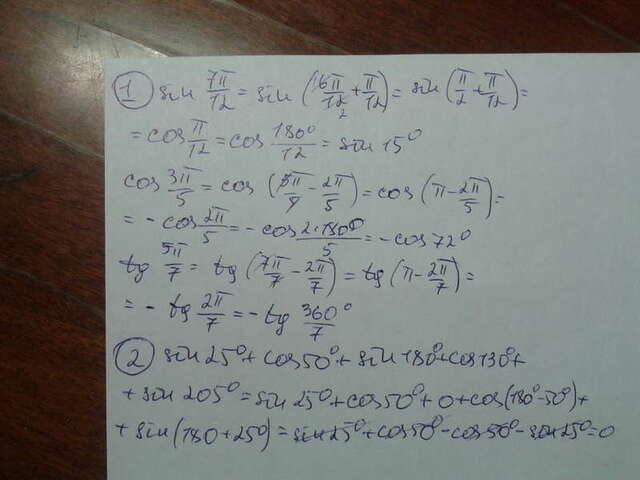 ① sin 7π/12 = sin (6π/12 + π/12) = sin (π/2 + π/12) =
= cos π/12 = cos 180°/12 = sin 15°
cos 3π/5 = cos (5π/5 - 2π/5) = cos (π - 2π/5) =
= - cos 2π/5 = - cos 2·180°/5 = - cos 72°
tg 5π/7 = tg (7π/7 - 2π/7) = tg (π - 2π/7) =
= - tg 2π/7 = - tg 360°/7
② sin 25° + cos 50° + sin 180° + cos 130° +
+ sin 205° = sin 25° + cos 50° + 0 + cos (180° - 50°) +
+ sin (180 + 25°) = sin 25° + cos 50° - cos 50° - sin 25° = 0